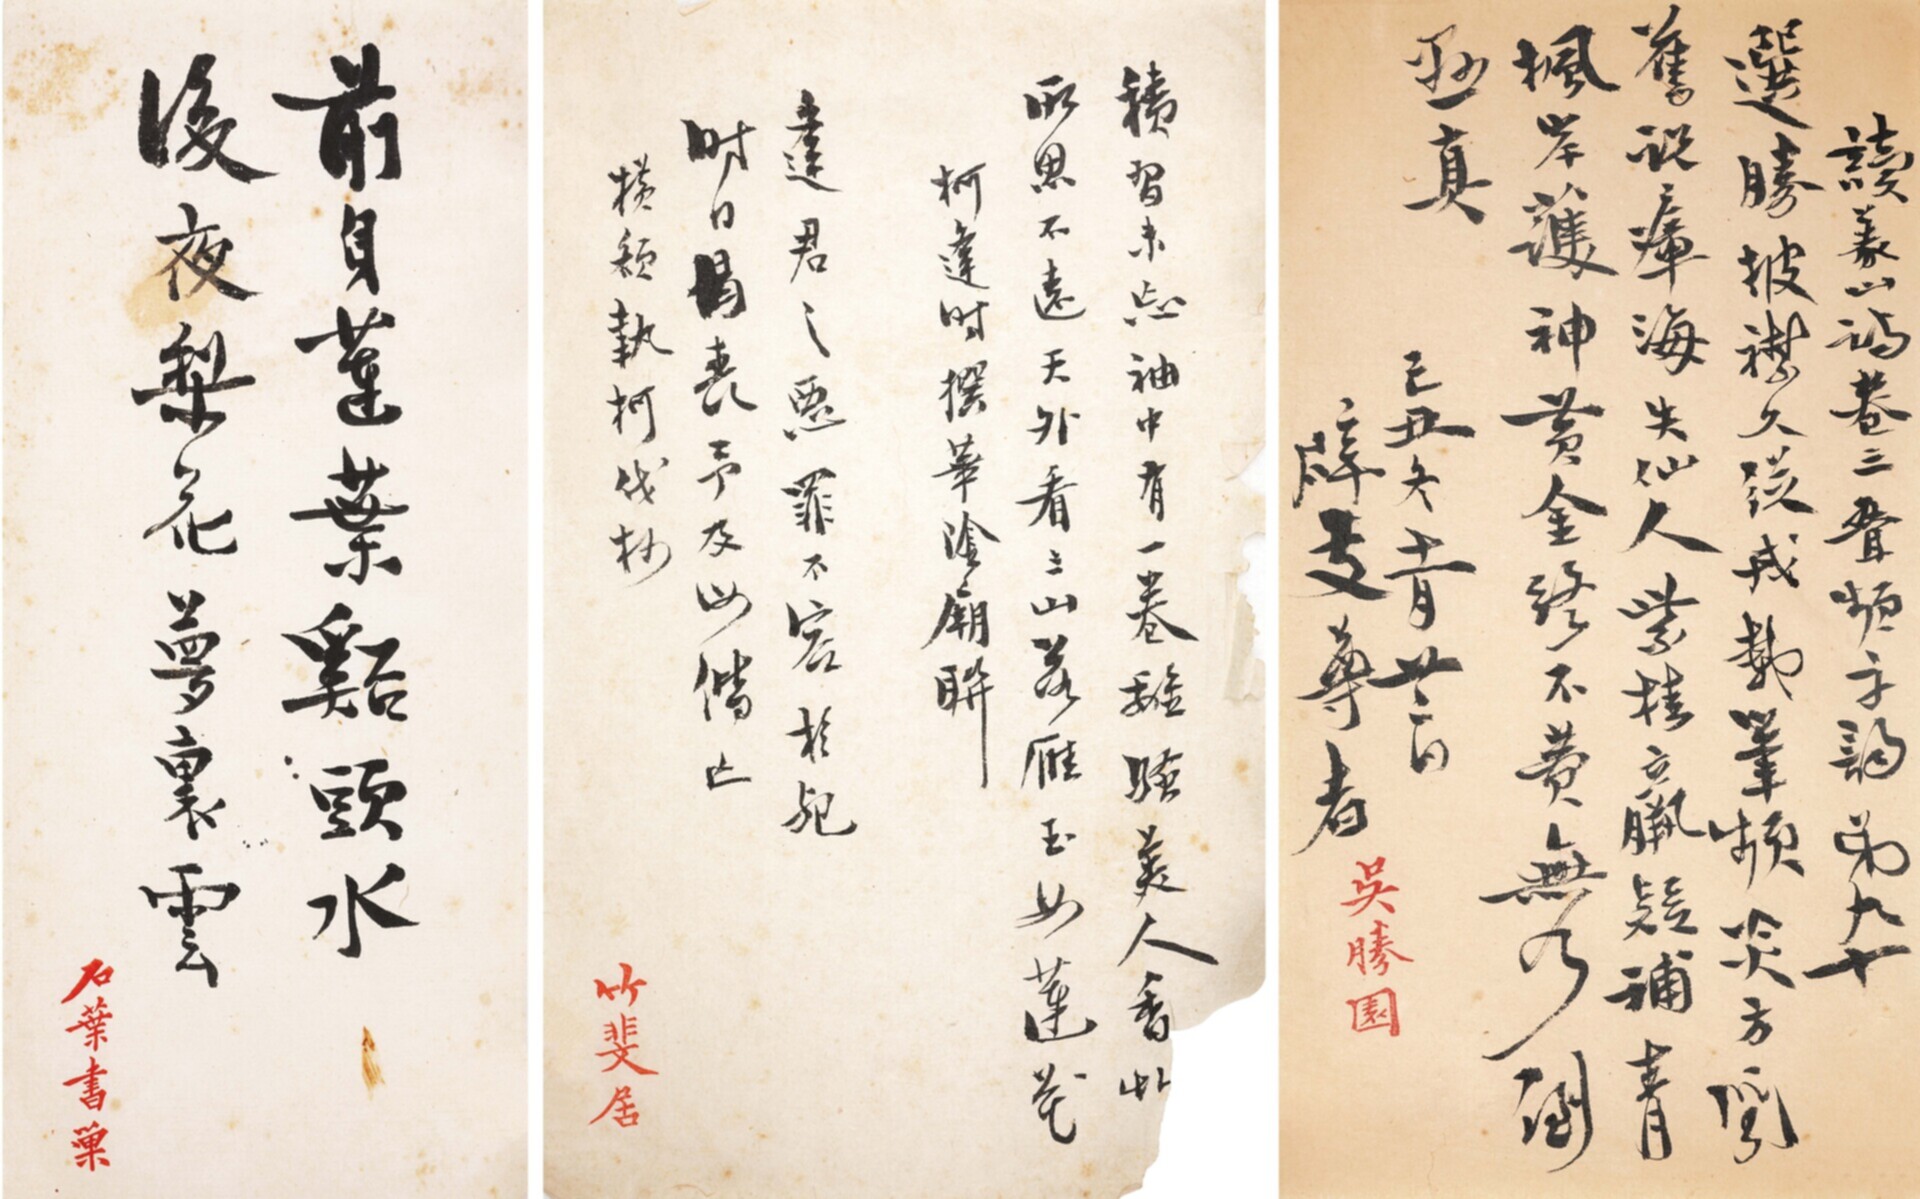 前身蓮葉谿頭水
後夜梨花夢裏雲
石葉書巢
積習未忘袖中有一卷離騷美人香艸
所思不遠天外看三山落雁玉女蓮花
柯逢時撰華陰廟聯
達君之惡罪不容於死
時日曷喪予及汝偕亡
橫額執柯伐柯
竹斐居
讀義山詩卷三疊頻字韻第九十
選勝披襟久談戎載筆頻炎方
舊說瘴海失仙人紫桂立疑補青
楓岸護神黃金終不費無乃倒
真
己丑冬十二月廿二日
尊者
吳勝園